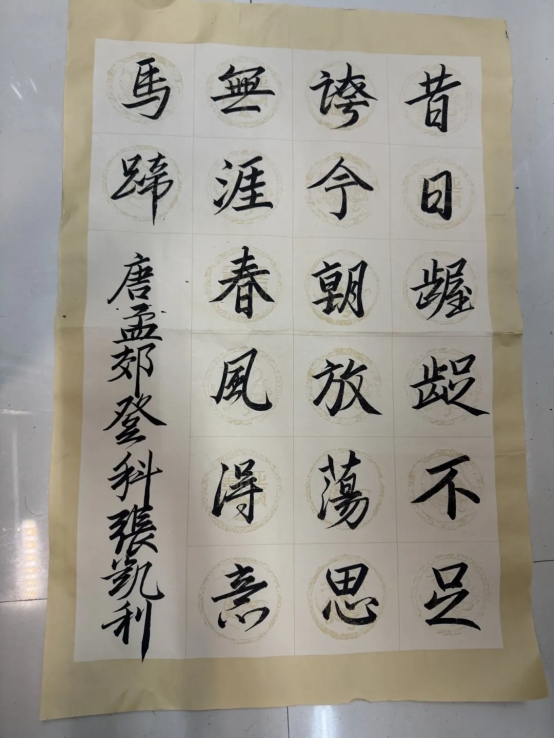 昔日齷齪不足
誇今朝放蕩思
無涯春風得意
馬蹄
唐孟郊登科張凱利